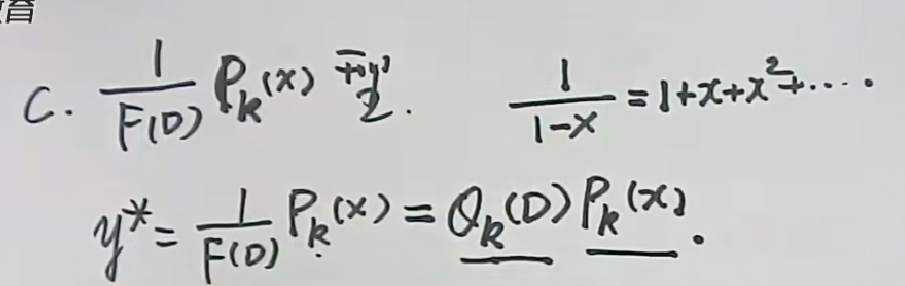 育
C. \frac{1}{F(D)} P_k(x) 型. \frac{1}{1-x} = 1+x+x^2+\cdots.
y^* = \frac{1}{F(D)} P_k(x) = Q_k(D) P_k(x).